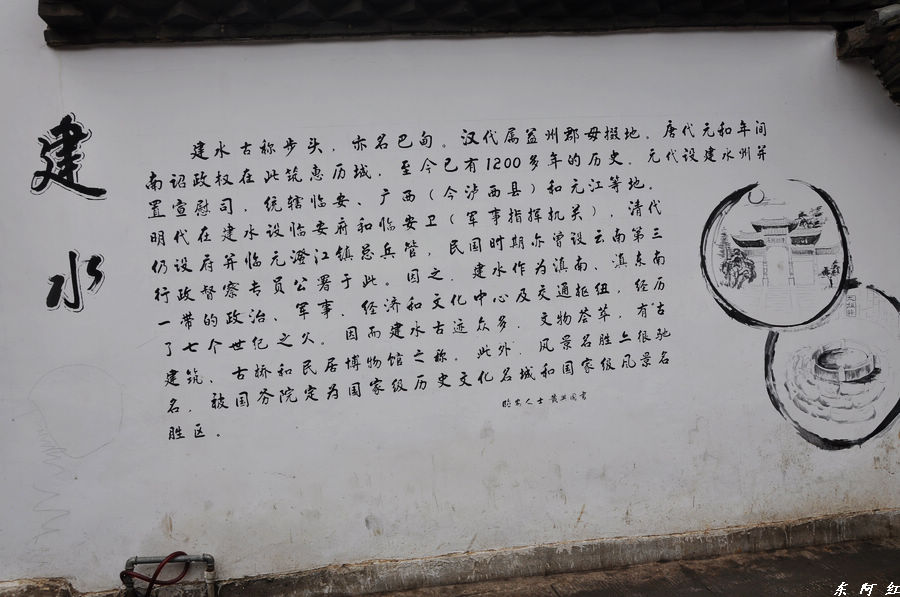 建水
建水古称步头，亦名巴甸。汉代属益州郡毋掇地。唐代元和年间
南诏政权在此筑惠历城，至今已有1200多年的历史。元代设建水州并
置宣慰司，统辖临安、广西（今泸西县）和元江等地。
明代在建水设临安府和临安卫（军事指挥机关），清代
仍设府并临元澄江镇总兵管，民国时期亦曾设云南第三
行政督察专员公署于此。因之，建水作为滇南、滇东南
一带的政治、军事，经济和文化中心及交通枢纽，经历
了七个世纪之久。因而建水古迹众多，文物荟萃，有"古
建筑、古桥和民居博物馆之称。此外，风景名胜亦很驰
名，被国务院定为国家级历史文化名城和国家级风景名
胜区。
东阿红